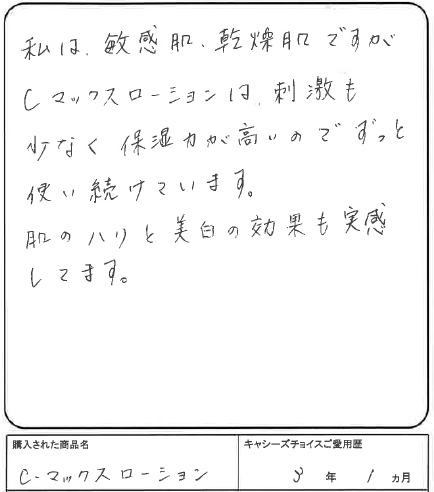 私は、敏感肌、乾燥肌ですが
Cマックスローションは、刺激も
少なく保湿力が高いのでずっと
使い続けています。
肌のハリと美白の効果も実感
してます。
購入された商品名
C-マックスローション
キャシーズチョイスご愛用歴
3年1ヵ月